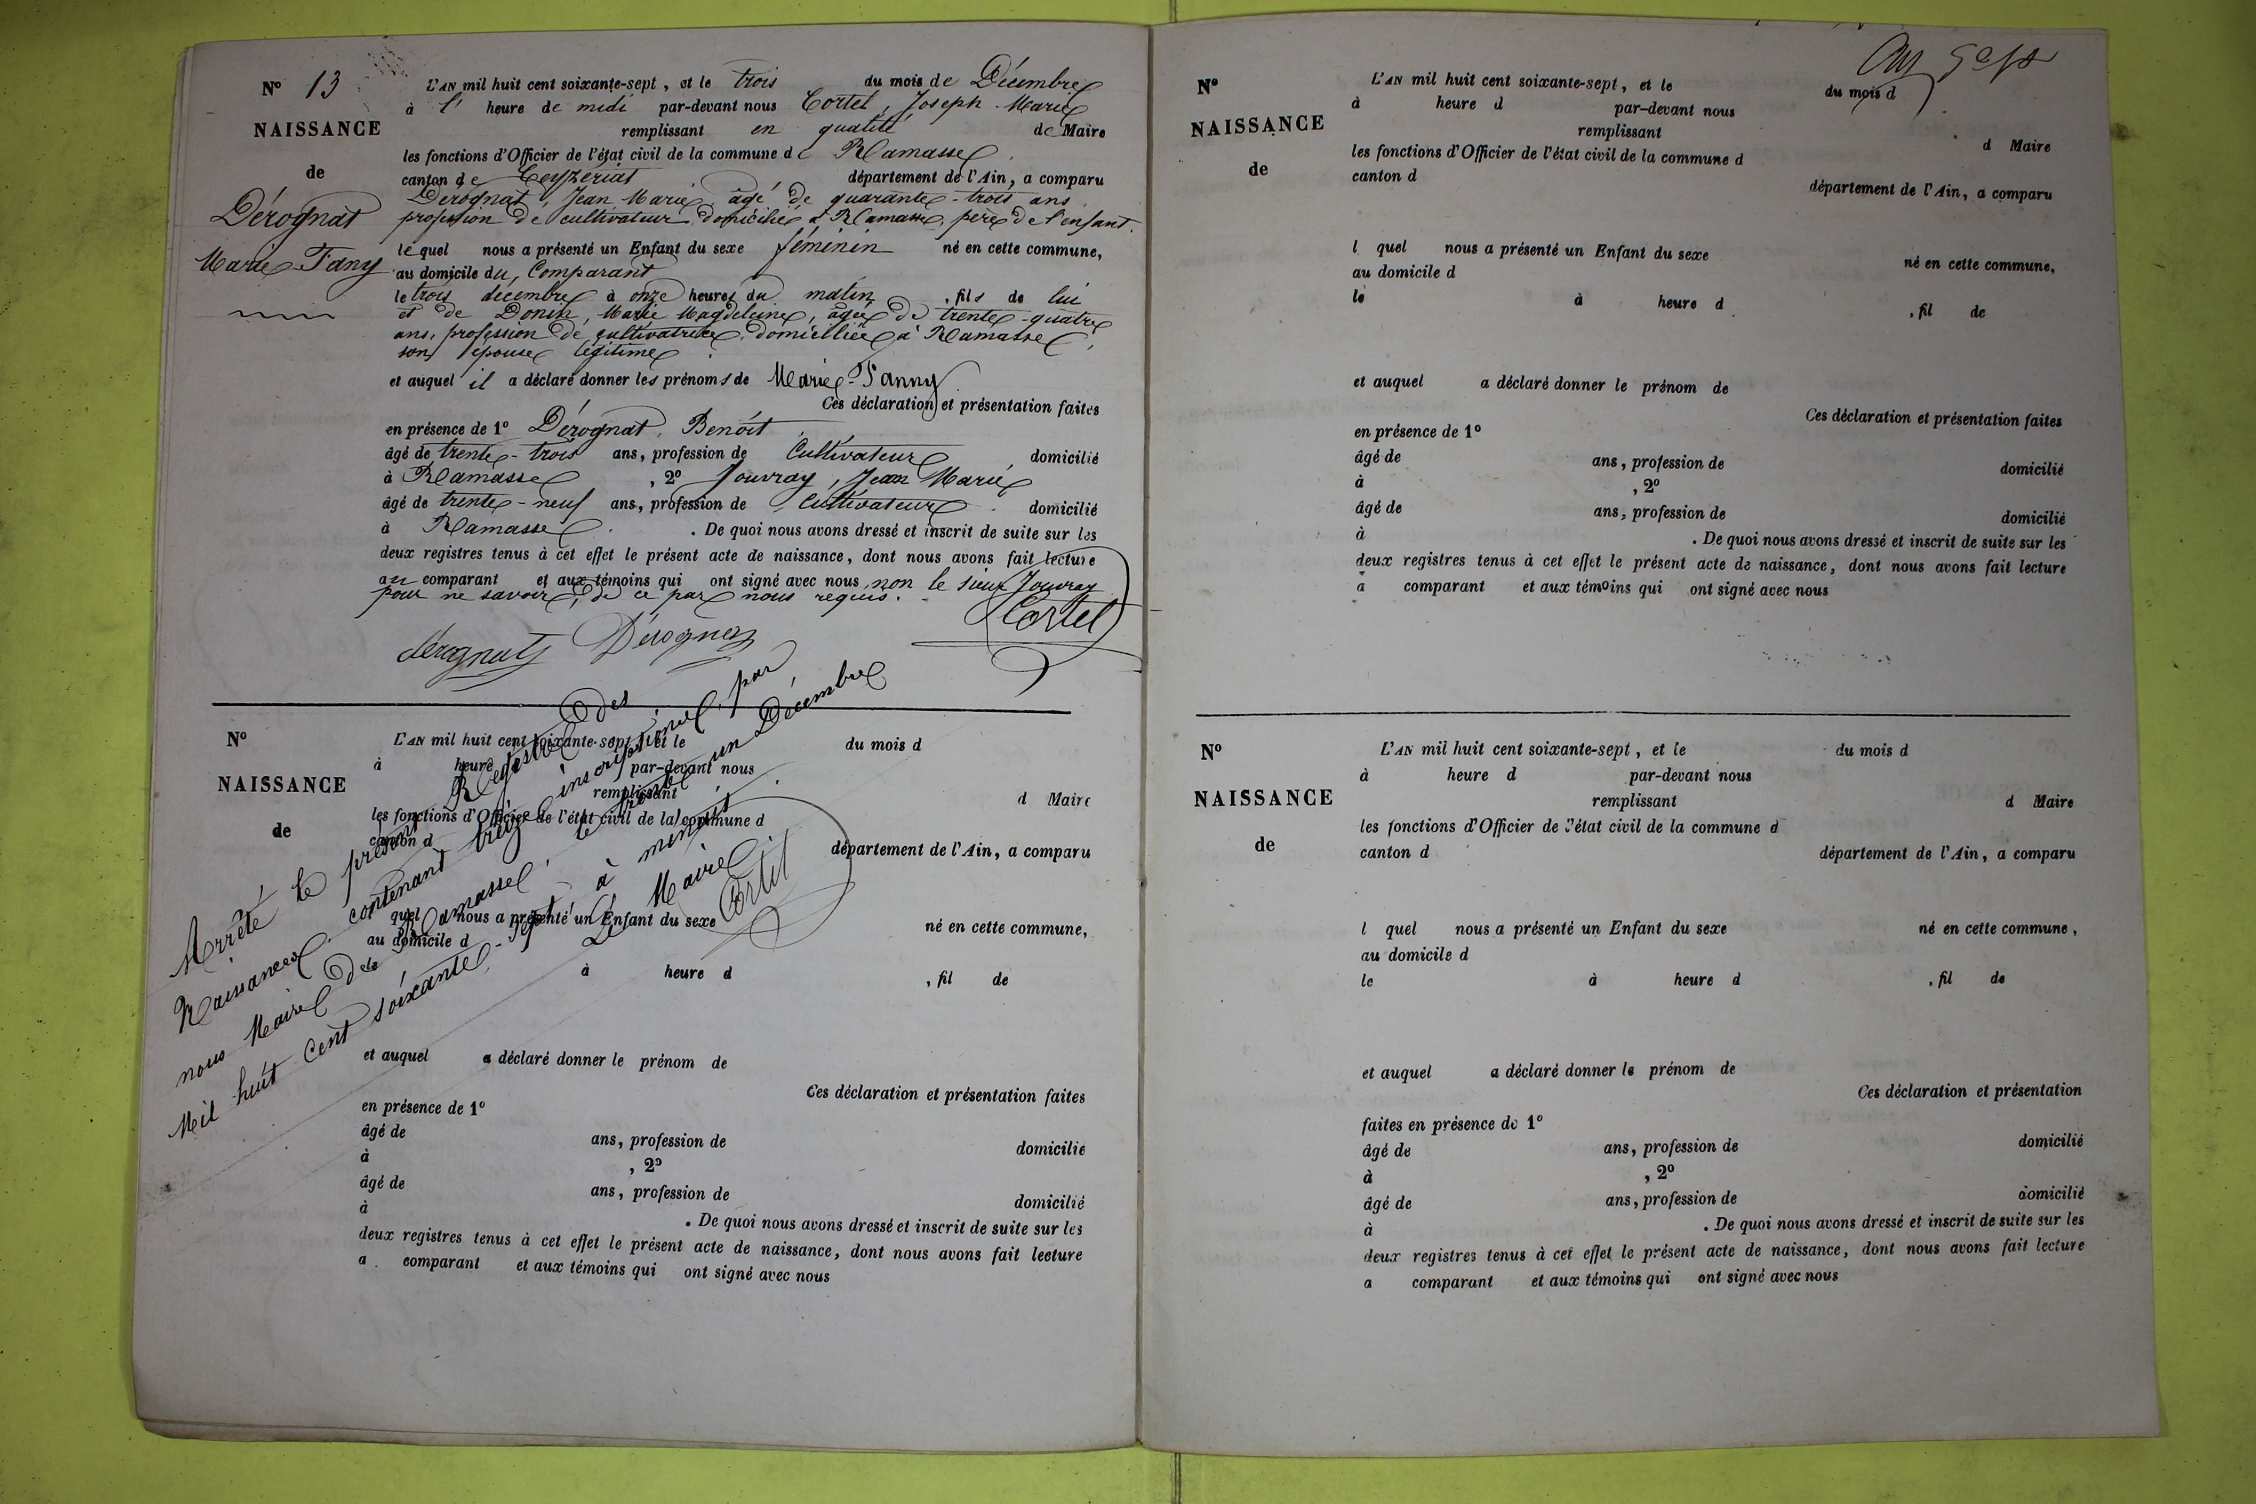 N° 13
NAISSANCE
de
Dérognat
Marie-Fany
L'AN mil huit cent soixante-sept, et le trois du mois de Décembre
à l' heure de midi par-devant nous Cortet, Joseph-Marie
remplissant en qualité de Maire
les fonctions d'Officier de l'état civil de la commune de Ramasse
canton de Ceyzériat département de l'Ain, a comparu
Dérognat, Jean Marie, âgé de quarante-trois ans
profession de cultivateur, domicilié à Ramasse, père de l'enfant.
lequel nous a présenté un Enfant du sexe féminin né en cette commune,
au domicile du Comparant
le trois décembre à onze heures du matin, fils de lui
et de Donin, Marie Magdeleine, âgée de trente-quatre
ans, profession de cultivatrice, domiciliée à Ramasse,
son épouse légitime
et auquel il a déclaré donner les prénoms de Marie-Fanny.
Ces déclaration et présentation faites
en présence de 1° Dérognat, Benoît
âgé de trente-trois ans, profession de Cultivateur, domicilié
à Ramasse, 2° Jouvray, Jean Marie
âgé de trente-neuf ans, profession de Cultivateur domicilié
à Ramasse. De quoi nous avons dressé et inscrit de suite sur les
deux registres tenus à cet effet le présent acte de naissance, dont nous avons fait lecture
au comparant et aux témoins qui ont signé avec nous, non le sieur Jouvray
pour ne savoir, de ce par nous requis.
dérognat Dérognat Cortet
N°
NAISSANCE
de
L'AN mil huit cent soixante-sept, et le du mois d
à heure par-devant nous
remplissant d Maire
les fonctions d'Officier de l'état civil de la commune d
canton d département de l'Ain, a comparu
quel nous a présenté un Enfant du sexe né en cette commune,
au domicile d
à heure d , fil de
et auquel a déclaré donner le prénom de
Ces déclaration et présentation faites
en présence de 1°
âgé de ans, profession de domicilié
à , 2°
âgé de ans, profession de domicilié
à . De quoi nous avons dressé et inscrit de suite sur les
deux registres tenus à cet effet le présent acte de naissance, dont nous avons fait lecture
a comparant et aux témoins qui ont signé avec nous
Arrêté le présent Registre des
Naissances contenant treize inscriptions, par
nous Maire de Ramasse, le trente un Décembre
Mil huit cent soixante-sept à minuit.
Le Maire
Cortet
N°
NAISSANCE
de
L'AN mil huit cent soixante-sept, et le du mois d
à heure d par-devant nous
remplissant d Maire
les fonctions d'Officier de l'état civil de la commune d
canton d département de l'Ain, a comparu
l quel nous a présenté un Enfant du sexe né en cette commune,
au domicile d
le à heure d , fil de
et auquel a déclaré donner le prénom de
Ces déclaration et présentation faites
en présence de 1°
âgé de ans, profession de domicilié
à , 2°
âgé de ans, profession de domicilié
à . De quoi nous avons dressé et inscrit de suite sur les
deux registres tenus à cet effet le présent acte de naissance, dont nous avons fait lecture
a comparant et aux témoins qui ont signé avec nous
N°
NAISSANCE
de
L'AN mil huit cent soixante-sept, et le du mois d
à heure d par-devant nous
remplissant d Maire
les fonctions d'Officier de l'état civil de la commune d
canton d département de l'Ain, a comparu
l quel nous a présenté un Enfant du sexe né en cette commune,
au domicile d
le à heure d , fil de
et auquel a déclaré donner le prénom de
Ces déclaration et présentation
faites en présence de 1°
âgé de ans, profession de domicilié
à , 2°
âgé de ans, profession de domicilié
à . De quoi nous avons dressé et inscrit de suite sur les
deux registres tenus à cet effet le présent acte de naissance, dont nous avons fait lecture
a comparant et aux témoins qui ont signé avec nous